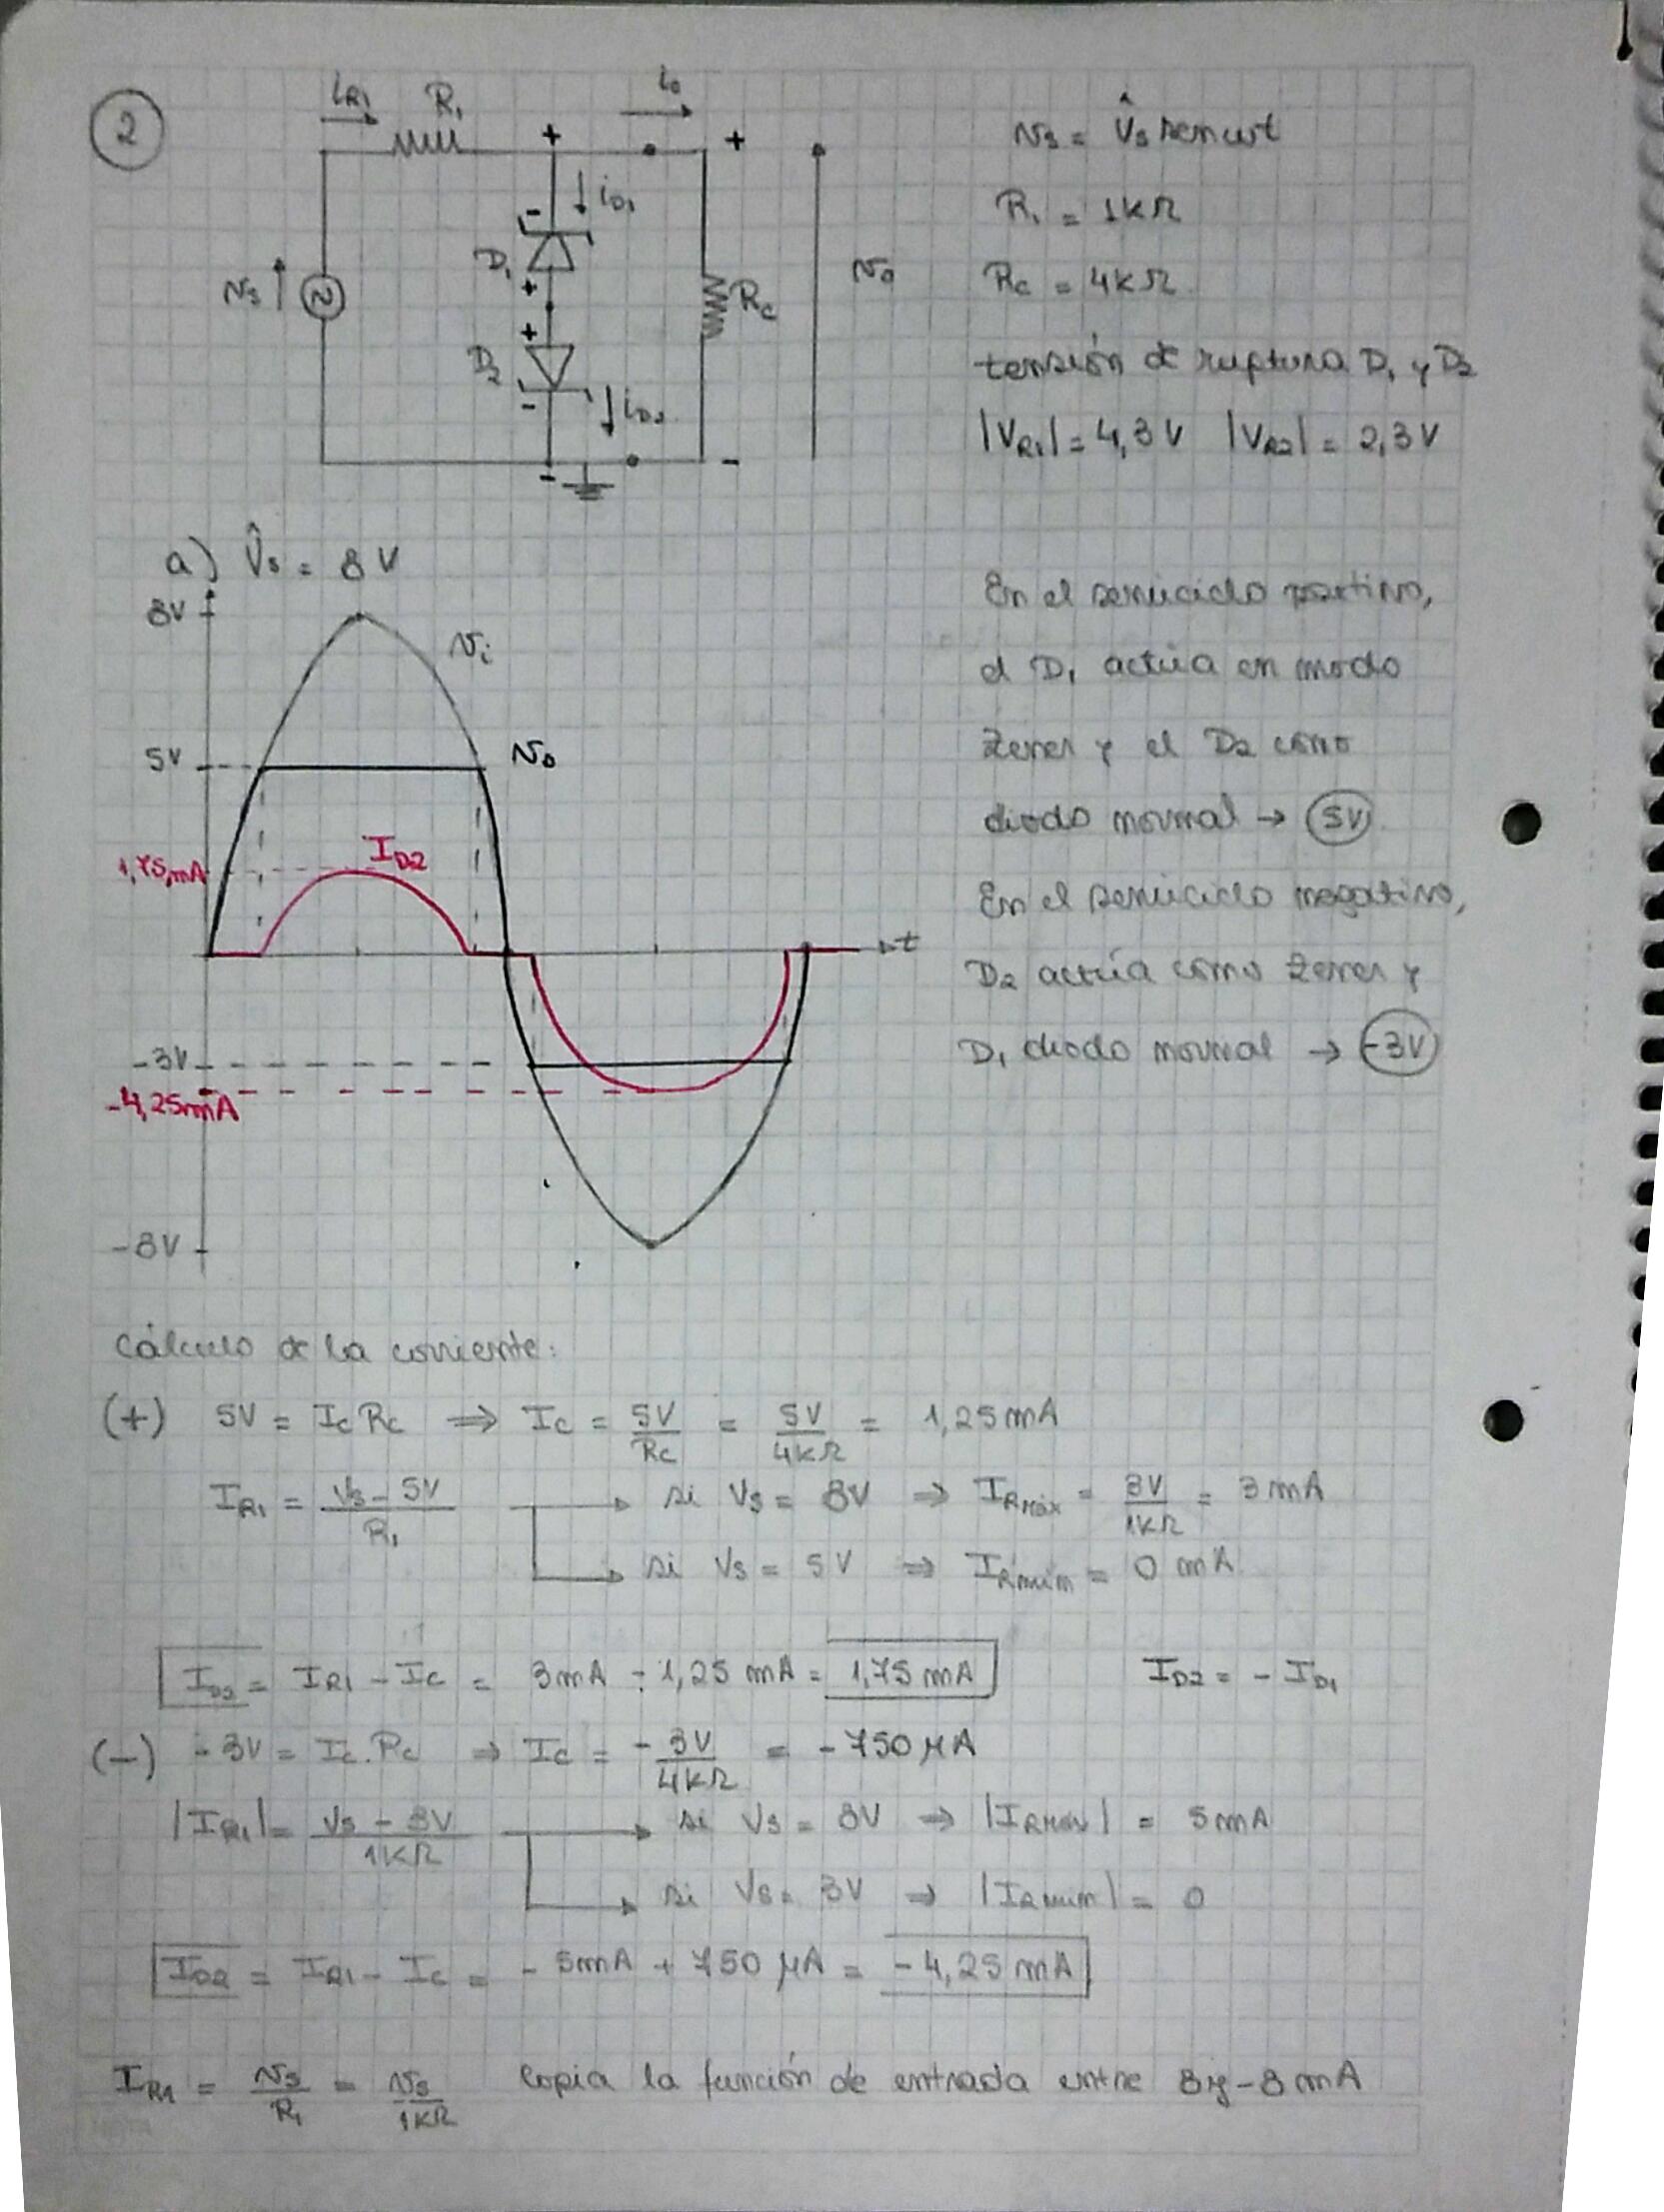 2
iR1 R1 io
+ +
- iD1
D1
+
+
D2
- iD2
vs
Rc
vo
-
-
vs = V̂s sen wt
R1 = 1KΩ
Rc = 4KΩ
tensión de ruptura D1 y D2
|VR1| = 4,3V |VR2| = 2,3V
a) V̂s = 8V
8V
vi
5V
vo
1,75mA
ID2
t
-3V
-4,25mA
-8V
En el semiciclo positivo,
el D1 actúa en modo
Zener y el D2 como
diodo normal → 5V
En el semiciclo negativo,
D2 actúa como zener y
D1 diodo normal → -3V
Cálculo de la corriente:
(+) 5V = Ic Rc ⇒ Ic = 5V/Rc = 5V/4KΩ = 1,25mA
IR1 = (Vs - 5V)/R1 → si Vs = 8V ⇒ IRmáx = 3V/1KΩ = 3mA
→ si Vs = 5V ⇒ IRmín = 0 mA
ID2 = IR1 - Ic = 3mA - 1,25mA = 1,75mA ID2 = - ID1
(-) -3V = Ic.Rc ⇒ Ic = -3V/4KΩ = -750μA
|IR1| = (Vs - 3V)/1KΩ → si Vs = 8V ⇒ |IRMáx| = 5mA
→ si Vs = 3V ⇒ |IRmín| = 0
ID2 = IR1 - Ic = -5mA + 750μA = -4,25mA
IR1 = vs/R1 = vs/1KΩ Copia la función de entrada entre 8 y -8mA